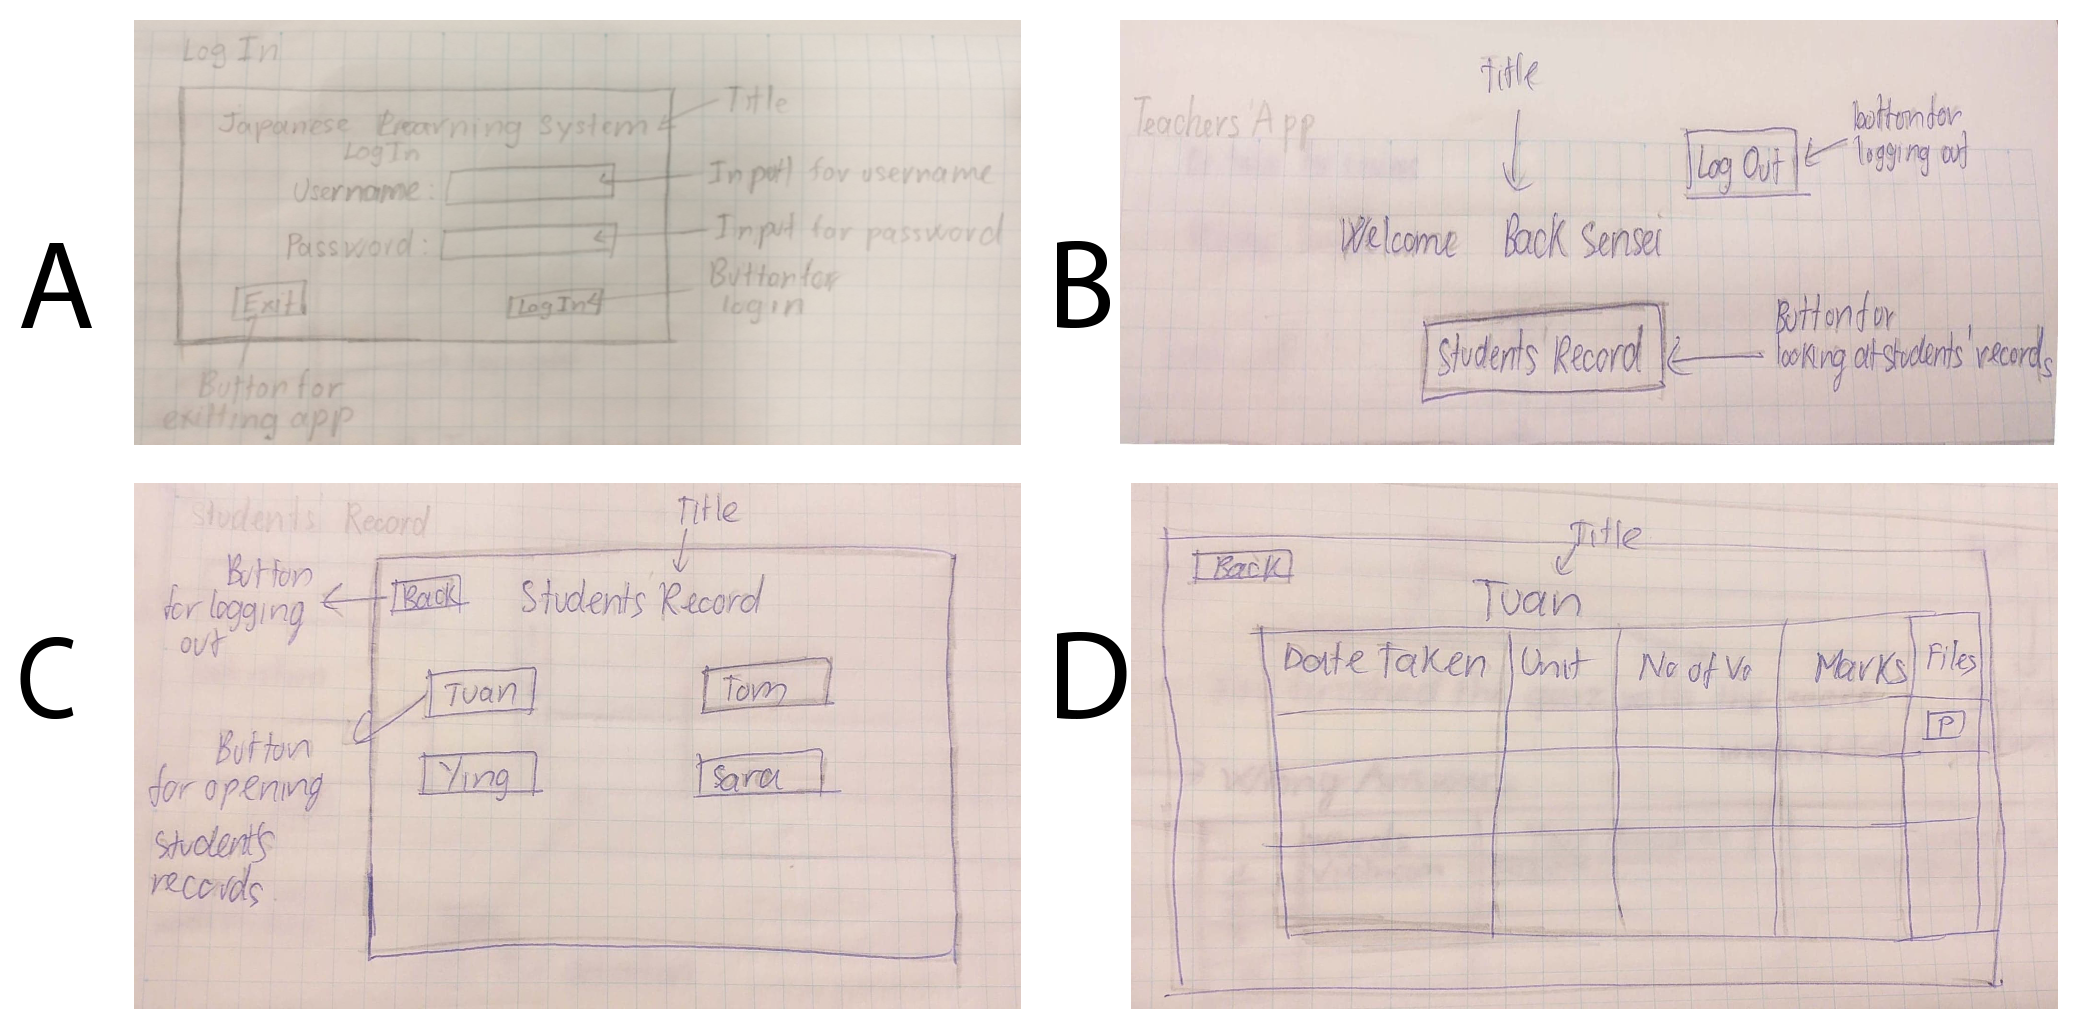 A
Log In
Japanese Learning System
Title
Log In
Username:
Input for username
Password:
Input for password
Exit
Log In
Button for
log in
Button for
exitting app
B
Title
Teachers' App
Log Out
button for
logging out
Welcome Back Sensei
Students' Record
Button for
looking at students' records
C
Students' Record
Title
Button
for logging
out
Back
Students' Record
Tuan
Tom
Ying
Sara
Button
for opening
students'
records
D
Back
Title
Tuan
Date Taken
Unit
No of Vo
Marks
Files
P